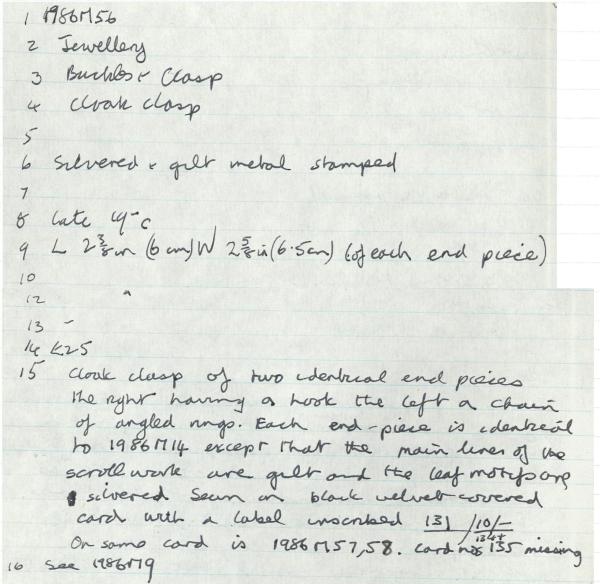 1 1986M56
2 Jewellery
3 Buckles & Clasp
4 Cloak clasp
5
6 Silvered & gilt metal stamped
7
8 Late 19-c
9 L 2 3/8 in (6 cm) W 2 5/8 in (6.5cm) (of each end piece)
10
12
13 -
14 £25
15 Cloak clasp of two identical end pieces
the right having a hook the left a chain
of angled rings. Each end-piece is identical
to 1986M14 except that the main lines of the
scrollwork are gilt and the leaf motifs are
silvered Sewn on black velvet covered
card with a label inscribed 131 /10/-
134+
On same card is 1986M57,58. card nos 135 missing
16 See 1986M9